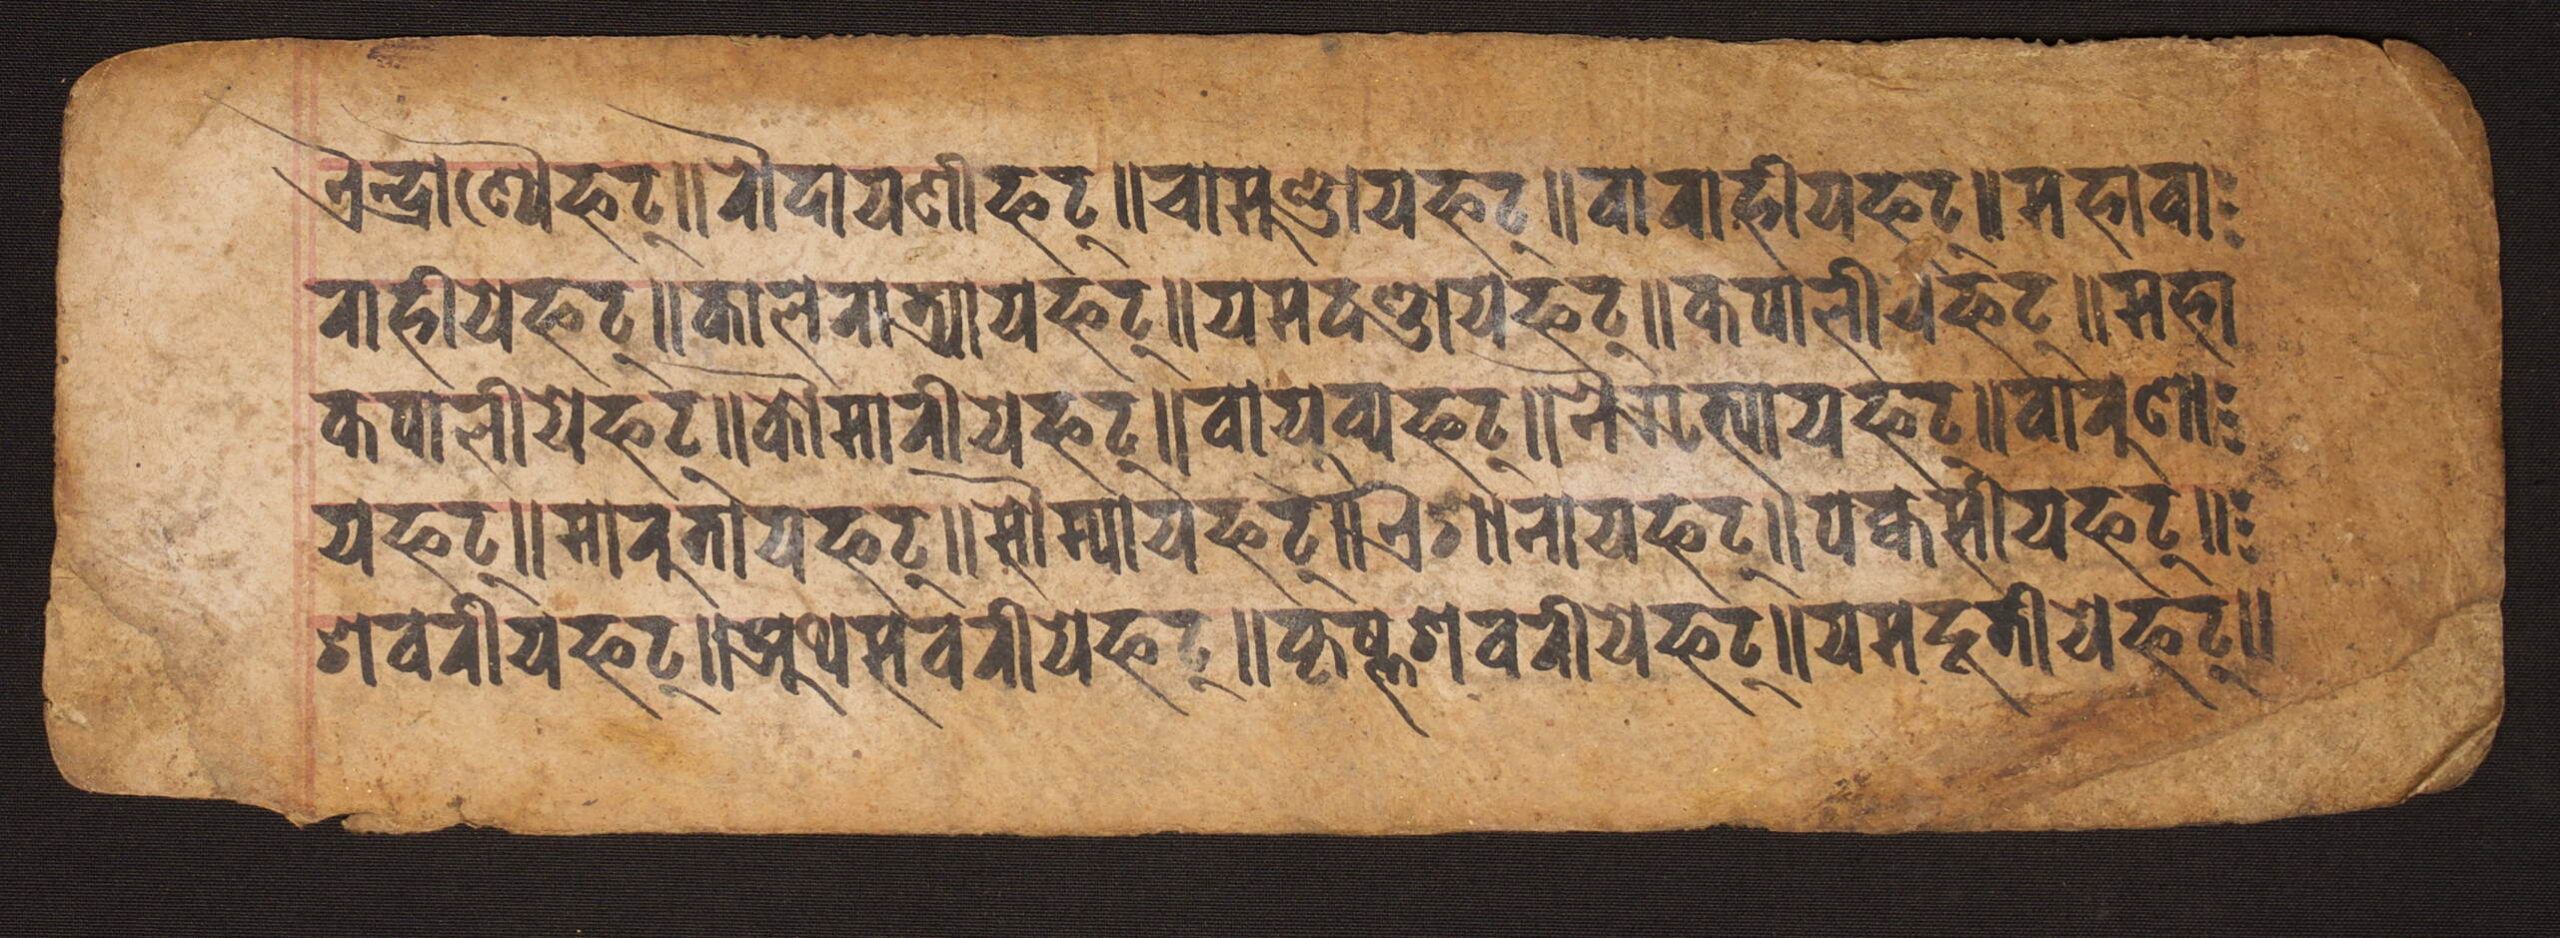 ऐन्द्राण्यै फट्॥ रौदायणी फट्॥ चामुण्डाय फट्॥ वाराहीय फट्॥ महावा
राहीये फट्॥ कालरात्र्याय फट्॥ यमदण्डाय फट्॥ कपालीय फट्॥ महा
कपालीये फट्॥ कौमारीये फट्॥ वायुव्य फट्॥ नैऋत्याय फट्॥ वारुणा
य फट्॥ मारुताय फट्॥ सौम्याय फट्॥ ऐशानाय फट्॥ पक्कसीय फट्॥
शवरीय फट्॥ अथसवरीये फट्॥ कृष्णशवरीये फट्॥ यमदूतीये फट्॥